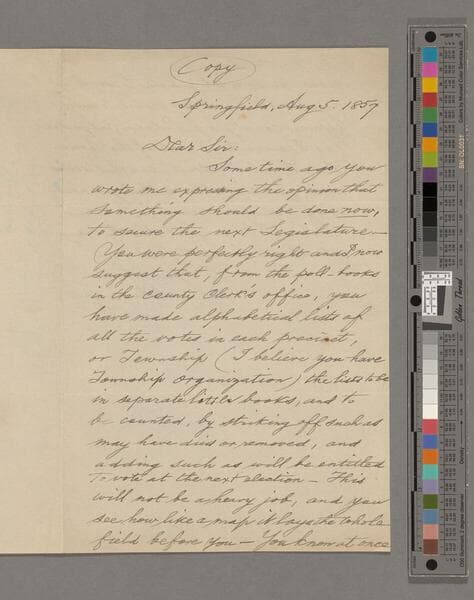 Copy
Springfield, Aug 5. 1857
Dear Sir:
Some time ago you
wrote me expressing the opinion that
something should be done now,
to secure the next Legislature—
You were perfectly right and I now
suggest that, from the poll-books
in the County Clerk's office, you
have made alphabetical lists of
all the votes in each precinct,
or Township (I believe you have
Township organization) the lists to be
in separate little books, and to
be counted, by striking off such as
may have died or removed, and
adding such as will be entitled
to vote at the next election — This
will not be a heavy job, and you
see how like a map it lays the whole
field before you — You know at once
Golden Thread